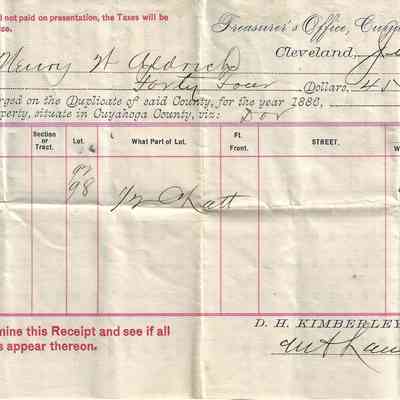 d not paid on presentation, the Taxes will be
ice.
Treasurer's Office, Cuya
Cleveland,
Henry W Aldrich
Forty Four Dollars, 45
rged on the Duplicate of said County, for the year 1886,
perty, situate in Cuyahoga County, viz:
Section or Tract.
Lot.
What Part of Lot.
Ft. Front.
STREET.
97
98
mine this Receipt and see if all
s appear thereon.
D. H. KIMBERLEY